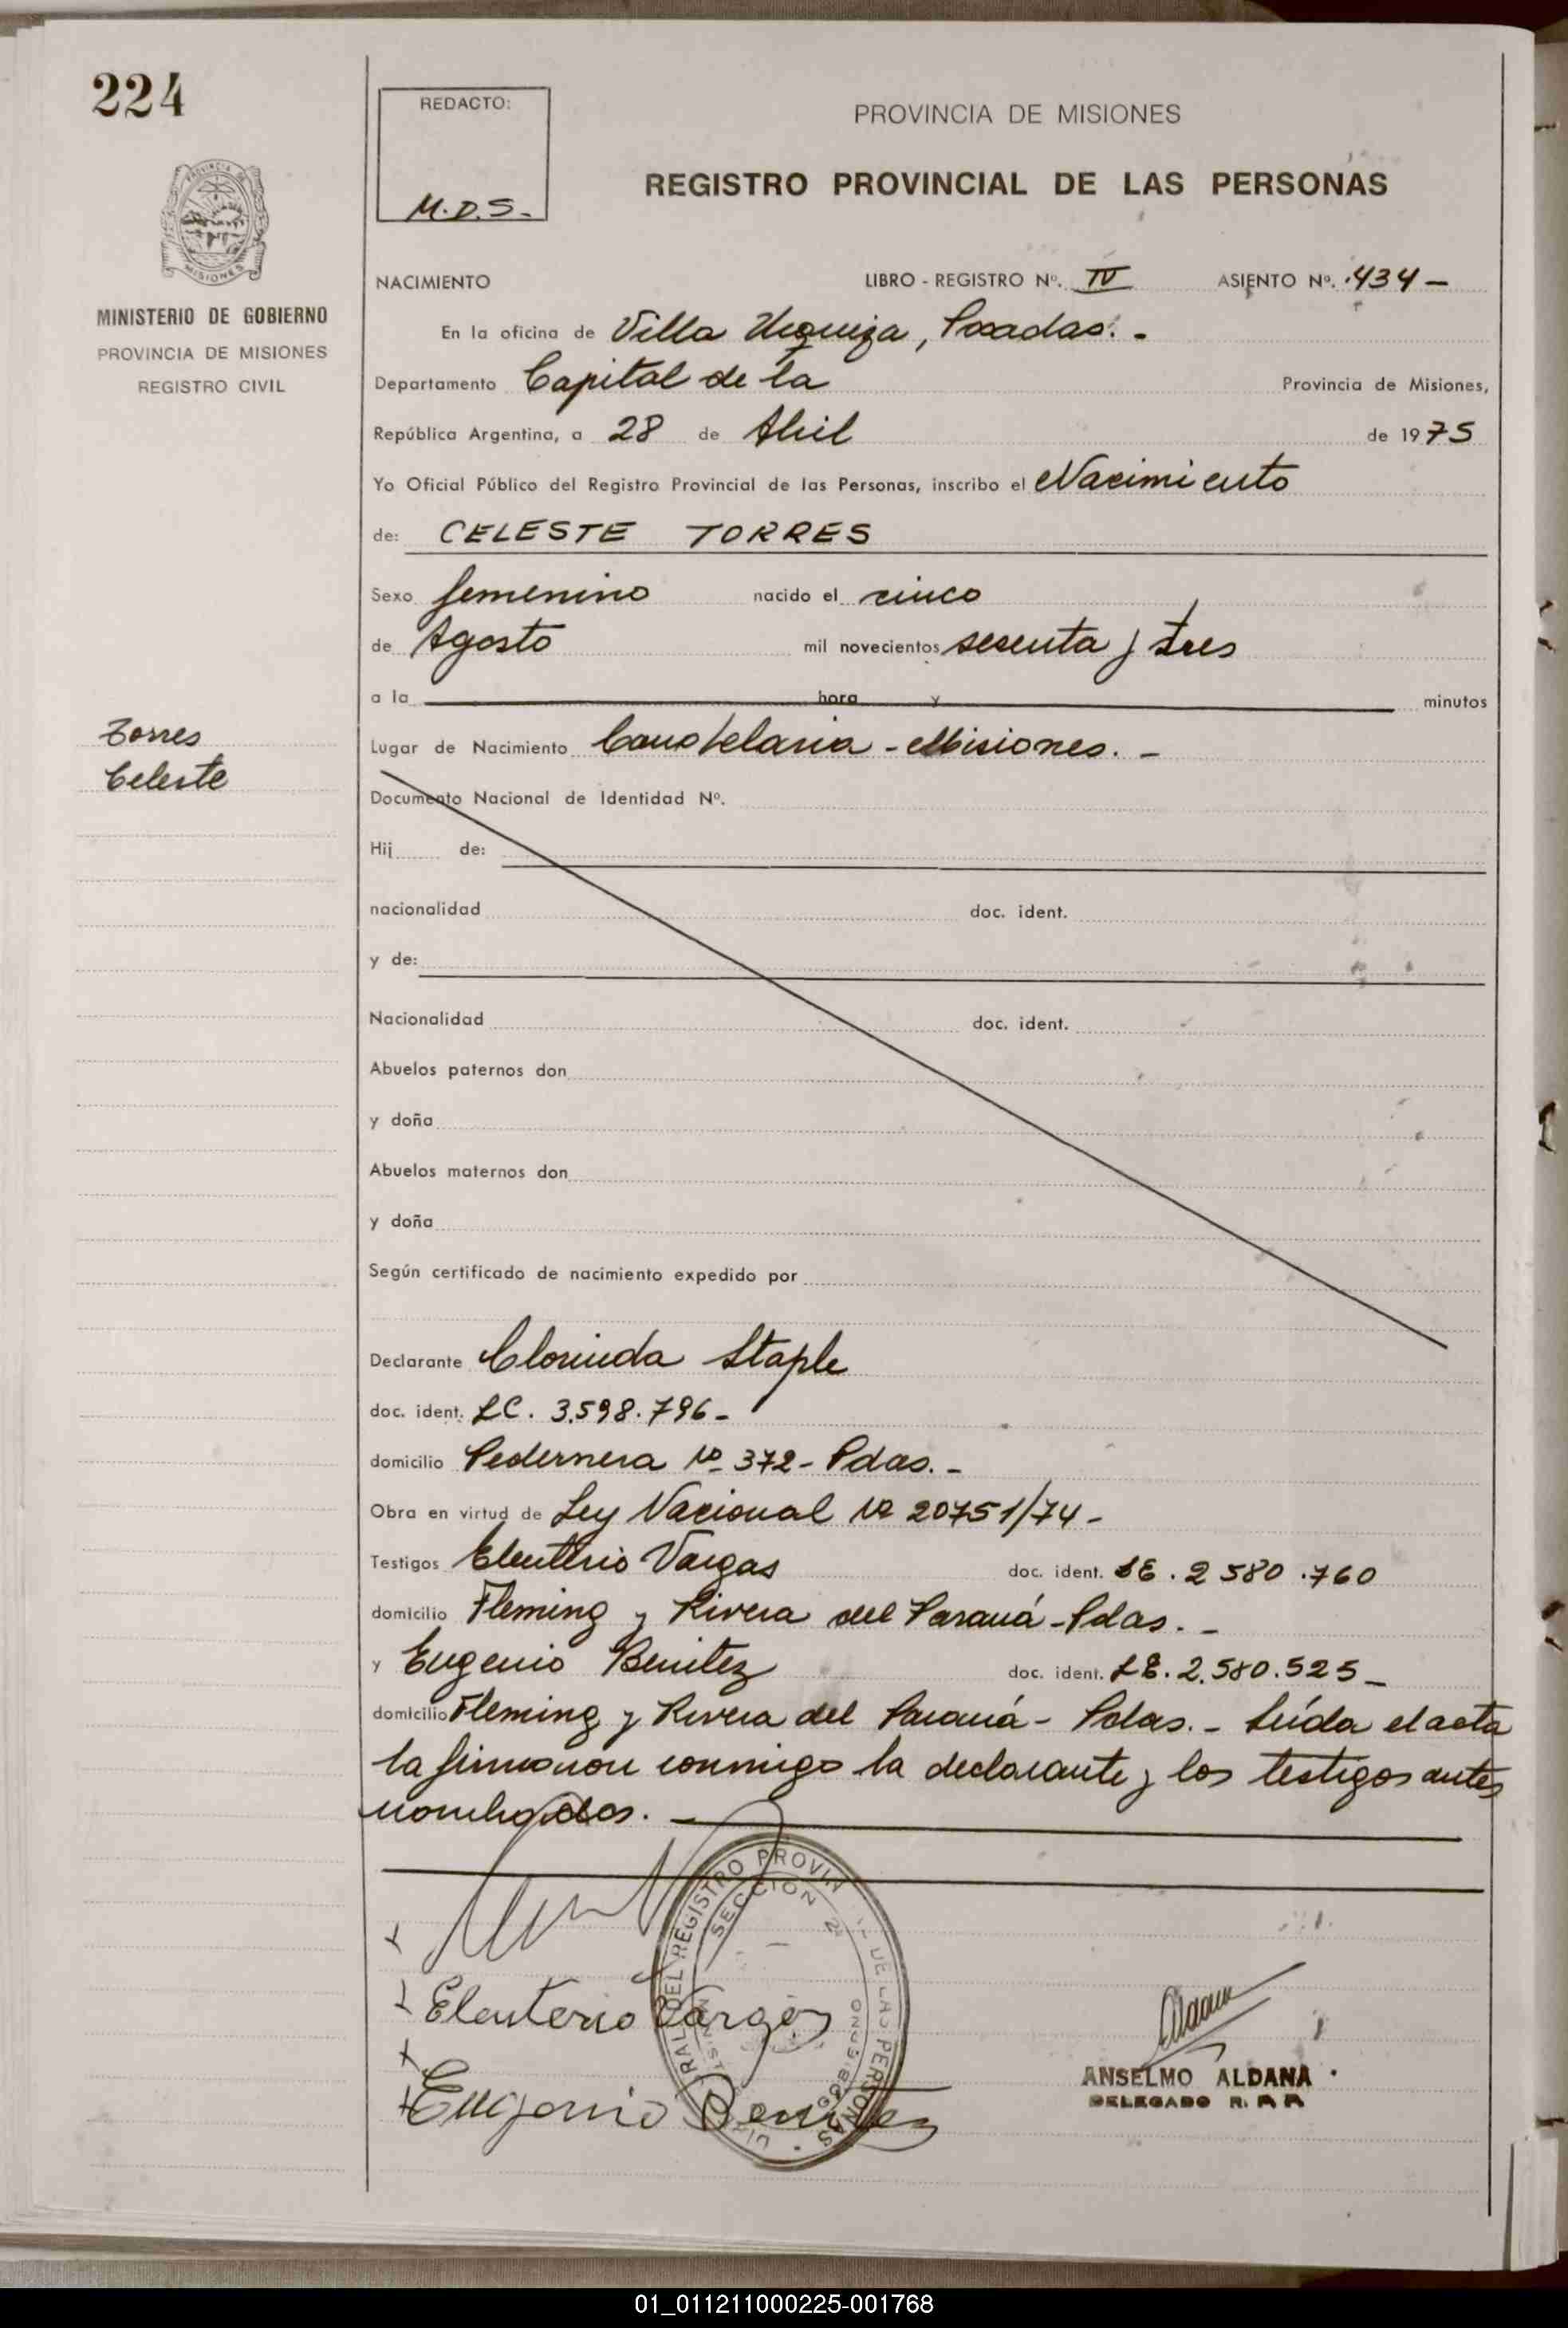 224
REDACTO:
M.D.S.-
PROVINCIA DE MISIONES
REGISTRO PROVINCIAL DE LAS PERSONAS
MISIONES
MINISTERIO DE GOBIERNO
PROVINCIA DE MISIONES
REGISTRO CIVIL
NACIMIENTO LIBRO - REGISTRO Nº. IV ASIENTO Nº. 434-
En la oficina de Villa Urquiza, Posadas.-
Departamento Capital de la Provincia de Misiones,
República Argentina, a 28 de Abril de 1975
Yo Oficial Público del Registro Provincial de las Personas, inscribo el Nacimiento
de: CELESTE TORRES
Sexo femenino nacido el cinco
de Agosto mil novecientos sesenta y tres
a la hora y minutos
Torres
Celeste
Lugar de Nacimiento Candelaria - Misiones.-
Documento Nacional de Identidad Nº.
Hij de:
nacionalidad doc. ident.
y de:
Nacionalidad doc. ident.
Abuelos paternos don
y doña
Abuelos maternos don
y doña
Según certificado de nacimiento expedido por
Declarante Clorinda Staple
doc. ident. LC. 3.598.796-
domicilio Pedernera Nº 372 - Pdas.-
Obra en virtud de Ley Nacional Nº 20751/74-
Testigos Eleuterio Vargas doc. ident. LE. 2 580.760
domicilio Fleming y Rivera del Paraná - Pdas.-
y Eugenio Benitez doc. ident. LE. 2.580.525-
domicilio Fleming y Rivera del Paraná - Pdas.- Leída el acta
la firmaron conmigo la declarante y los testigos antes
nombrados.-
Eleuterio Vargas
Eugenio Benitez
SECCION 2ª
Aldana
ANSELMO ALDANA
DELEGADO R. P. P.
01_011211000225-001768